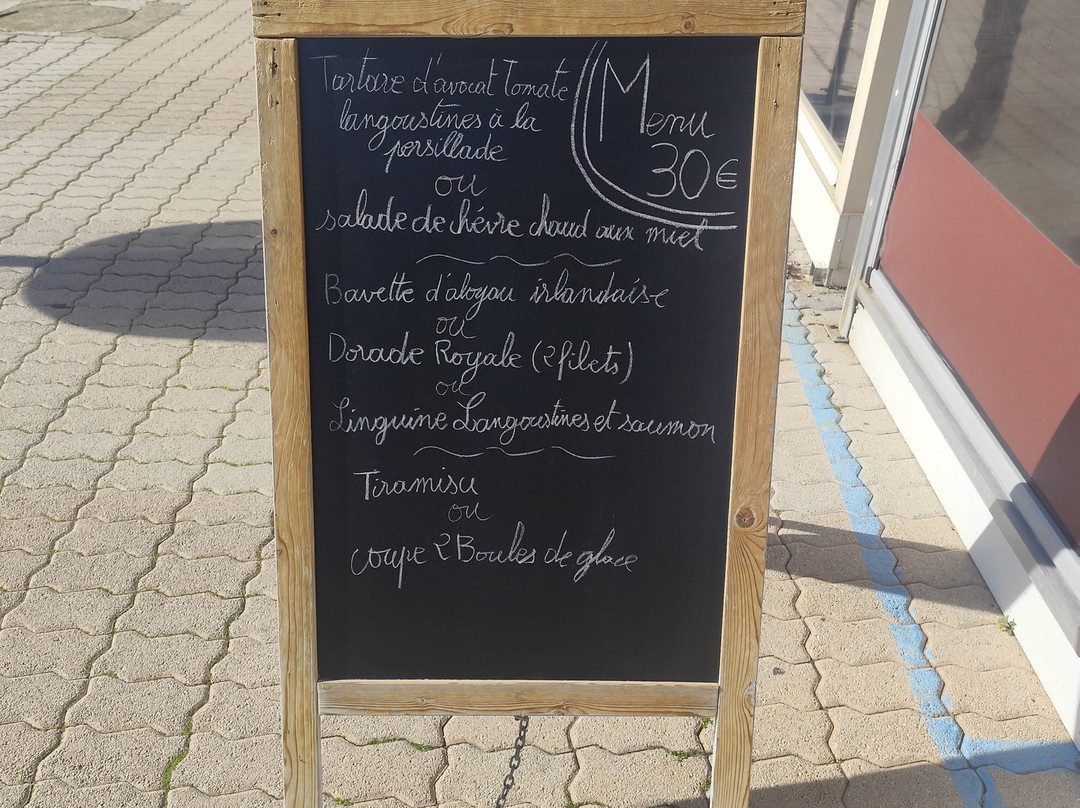 Tartare d'avocat Tomate
langoustines à la
persillade
ou
salade de chévre chaud aux miel
Menu
30€
Bavette d'aloyau irlandaise
ou
Dorade Royale (2 filets)
ou
Linguine Langoustines et saumon
Tiramisu
ou
coupe 2 Boules de glace